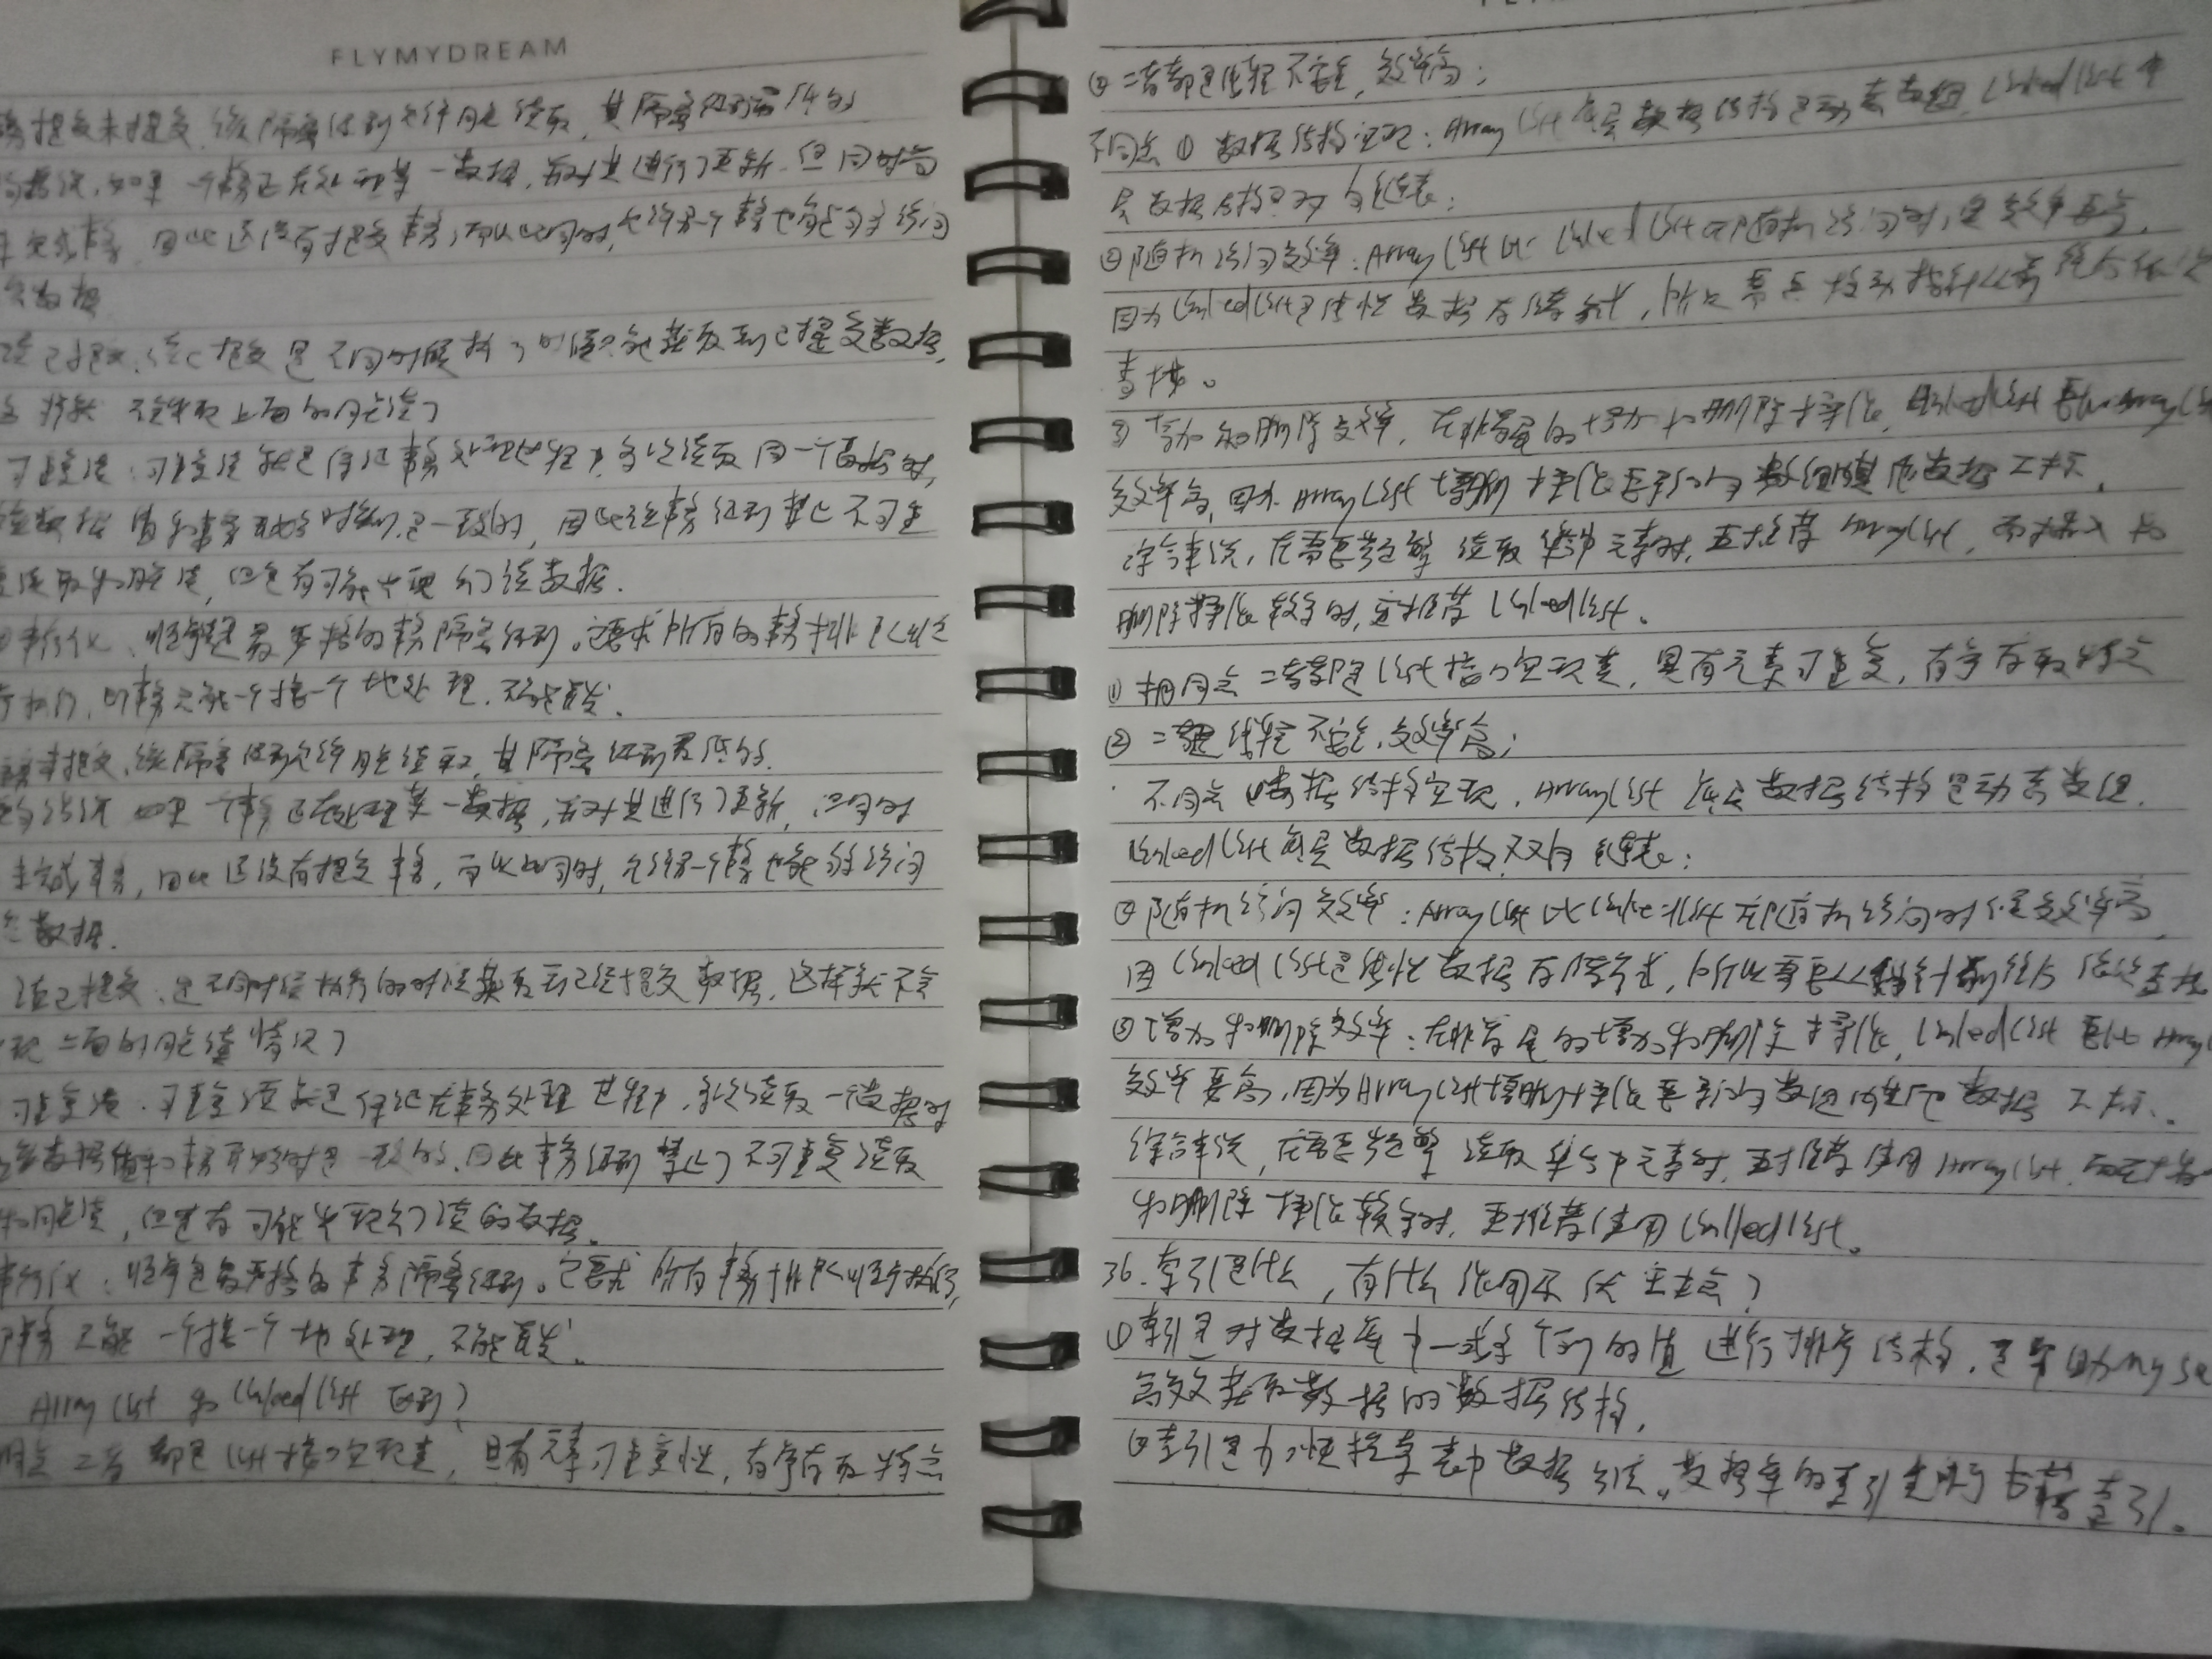 FLYMYDREAM
读未提交,该隔离级别允许脏读取,其隔离级别
一个事务正在处理某一数据,并对其进行了更新,但同时
完成事务,因此还没有提交事务,而以此同时,允许另一个事务也能够访问
数据
不会出现上面的脏读了
可重复读:可重复读就是保证事务处理过程中,多次读取同一个数据时,
数据值和事务开始时刻是一致的,因此该事务级别禁止不可重
复读取和脏读,但是有可能出现幻读数据.
串行化:顺序是最严格的事务隔离级别。它要求所有的事务排队顺序
执行,即事务只能一个接一个地处理,不能并发.
未提交,该隔离级别允许脏读取,其隔离级别最低的.
如果一个事务正在处理某一数据,并对其进行了更新,
未完成事务,因此还没有提交事务,而以此同时,允许另一个事务也能够访问
数据.
读已提交:是不同时候执行的时候获取到已经提交数据,这样就不会
现上面的脏读情况了
可重复读:可重复读就是保证在事务处理过程中,多次读取一个数据时
数据值和事务开始时是一致的,因此事务级别禁止了不可重复读取
和脏读,但是有可能出现幻读的数据.
串行化:顺序是最严格的事务隔离级别。它要求所有事务排队顺序执行,
即事务只能一个接一个地处理,不能并发.
ArrayList 和 LinkedList 区别?
同点 二者都是List接口实现类,具有元素可重复性,有序存取特点
② 二者都是线程不安全,效率高;
不同点 ① 数据结构实现:ArrayList底层数据结构是动态数组,LinkedList底
层数据结构是双向链表;
② 随机访问效率:ArrayList比LinkedList在随机访问时,是效率要高,
因为LinkedList是线性数据存储方式,所以需要移动指针从前往后依次
查找。
③ 增加和删除效率,在非首尾的增加和删除操作,LinkedList要比ArrayList
效率高,因为ArrayList增删操作要影响数组其他数据下标.
综合来说,在需要频繁读取集合中元素时,更推荐ArrayList,而插入和
删除操作较多时,更推荐LinkedList.
① 相同点 二者都是List接口实现类,具有元素可重复,有序存取特点
② 二者是线程不安全,效率高;
不同点 ① 数据结构实现,ArrayList底层数据结构是动态数组,
LinkedList底层数据结构双向链表;
② 随机访问效率:ArrayList比LinkedList在随机访问时候是效率高,
因LinkedList是线性数据存储方式,所以需要从指针前往后依次查找
③ 增加和删除效率:在非首尾的增加和删除操作,LinkedList要比Array
效率要高,因为ArrayList增删操作要影响数组内其他数据下标.
综合来说,在需要频繁读取集合中元素时,更推荐使用ArrayList,而在插入
和删除操作较多时,更推荐使用LinkedList。
36.索引是什么,有什么作用及优缺点?
① 索引是对数据库中一或多个列的值进行排序结构,是帮助MySQ
高效获取数据的数据结构,
② 索引是加快检索表中数据方法。数据库的索引类似于书籍索引。